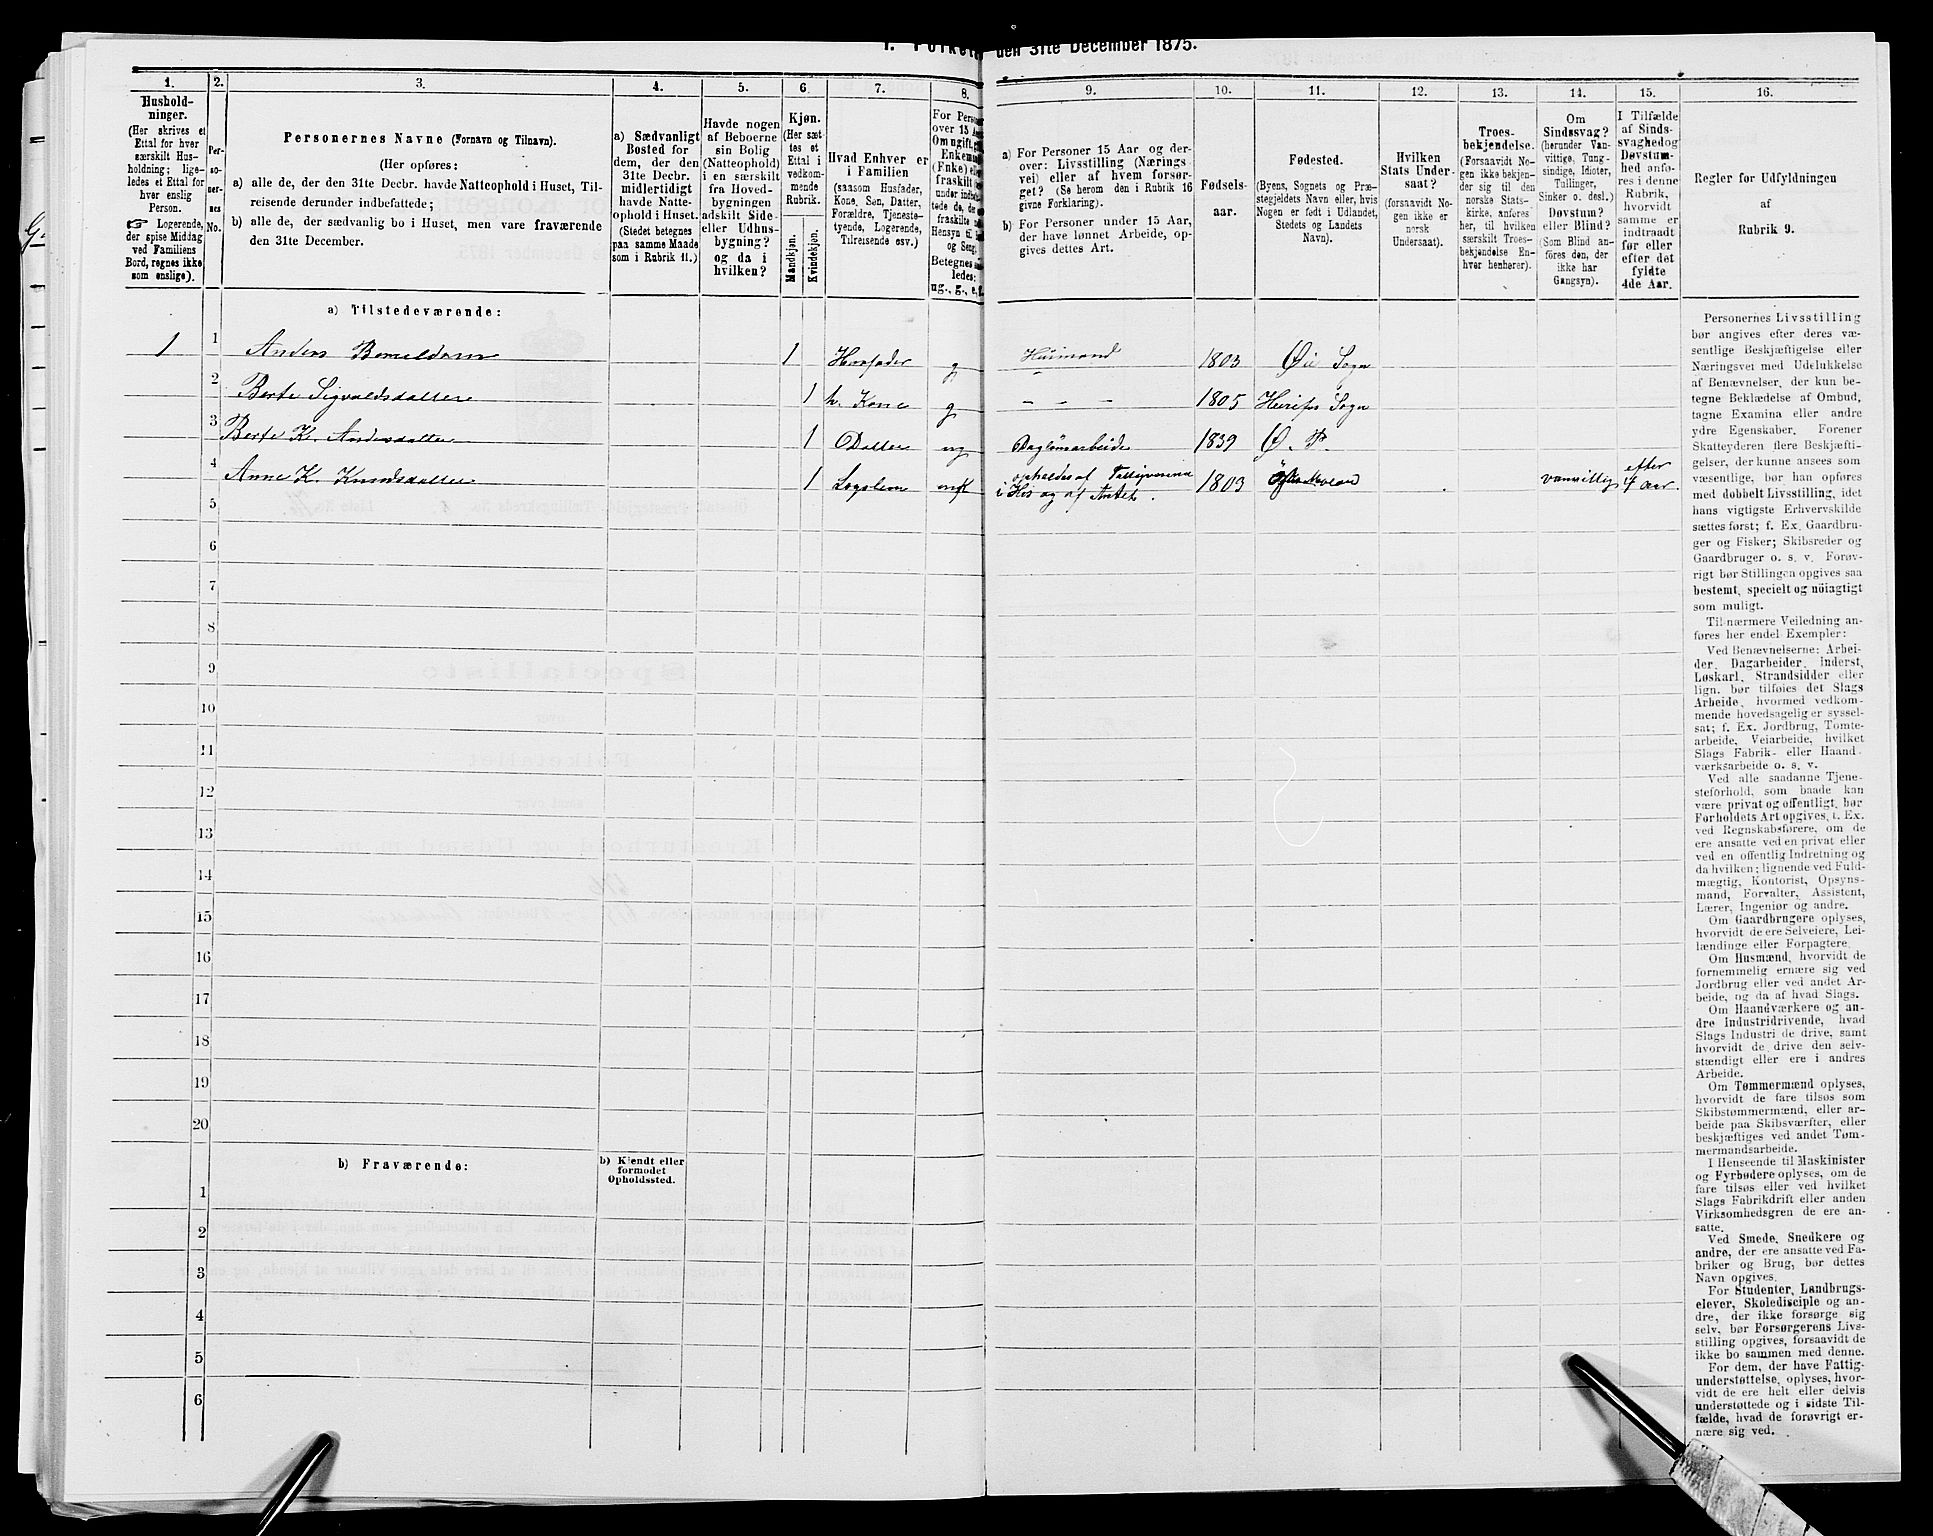 den 31te December 1875.
1.
2.
3.
4.
5.
6.
7.
8.
9.
10.
11.
12.
13.
14.
15.
16.
Hushold-
ninger.
(Her skrives et
Ettal for hver
særskilt Hus-
holdning; lige-
ledes et Ettal for
hver enslig
Person.
☞ Logerende,
der spise Middag
ved Familiens
Bord, regnes ikke
som enslige).
Per-
so-
ner-
nes
No.
Personernes Navne (Fornavn og Tilnavn).
(Her opføres:
a) alle de, der den 31te Decbr. havde Natteophold i Huset, Til-
reisende derunder indbefattede;
b) alle de, der sædvanlig bo i Huset, men vare fraværende
den 31te December.
a) Sædvanligt
Bosted for
dem, der den
31te Decbr.
midlertidigt
havde Natte-
ophold i Huset.
(Stedet betegnes
paa samme Maade
som i Rubrik 11.)
Havde nogen
af Beboerne
sin Bolig
(Natteophold)
i en særskilt
fra Hoved-
bygningen
adskilt Side-
eller Udhus-
bygning?
og da i
hvilken?
Kjøn.
(Her sæt-
tes et
Ettal i
vedkom-
mende
Rubrik.
Mandkjøn.
Kvindekjøn.
Hvad Enhver er
i Familien
(saasom Husfader,
Kone, Søn, Datter,
Forældre, Tjeneste-
tyende, Logerende,
Tilreisende osv.)
For Pers
over 15 A
Om ugift, g
Enkem
(Enke) el
fraskilt
under ind
tede, de, d
fraskilte
Hensyn ti
og Seng.
Betegnes
ledes:
ug., g., e, f.
a) For Personer 15 Aar og der-
over: Livsstilling (Nærings-
vei) eller af hvem forsør-
get? (Se herom den i Rubrik 16
givne Forklaring).
b) For Personer under 15 Aar,
der have lønnet Arbeide, op-
gives dettes Art.
Fødsels-
aar.
Fødested.
(Byens, Sognets og Præ-
stegjeldets Navn eller, hvis
Nogen er født i Udlandet,
Stedets og Landets
Navn).
Hvilken
Stats Under-
saat?
(forsaavidt No-
gen ikke er
norsk
Undersaat).
Troes-
bekjendelse.
(Forsaavidt No-
gen ikke bekjen-
der sig til den
norske Stats-
kirke, anføres
her, til hvilken
særskilt Troes-
bekjendelse En-
hver henhører).
Om
Sindssvag?
(herunder Van-
vittige, Tung-
sindige, Idioter,
Tullinger,
Sinker o. desl.)
Døvstum?
eller Blind?
(Som Blind an-
føres den, der
ikke har
Gangsyn).
I Tilfælde
af Sinds-
svaghed og
Døvstum-
hed anfø-
res i denne
Rubrik,
hvorvidt
samme er
indtraadt
før eller
efter det
fyldte
4de Aar.
Regler for Udfyldningen
af
Rubrik 9.
a) Tilstedeværende:
1 1 Anders 1 g Husmand 1803 Øie Sogn
2 Berte Sigvaldsdatter 1 h. Kone g — — — 1805 Sogn
3 Berte K. Andersdatter 1 Datter ug 1839 Ø. P.
4 Anne K. Knudsdatter 1 Lægslem enk 1803 vanvittig efter
4 Aar.
5
6
7
8
9
10
11
12
13
14
15
16
17
18
19
20
b) Fraværende:
b) Kjendt eller
formodet
Opholdssted.
1
2
3
4
5
6
Personernes Livsstilling
bør angives efter deres væ-
sentlige Beskjæftigelse eller
Næringsvei med Udelukkelse
af Benævnelser, der kun be-
tegne Beklædelse af Ombud,
tagne Examina eller andre
ydre Egenskaber. Forener
Skatteyderen flere Beskjæfti-
gelser, der kunne ansees som
væsentlige, bør han opføres
med dobbelt Livsstilling, idet
hans vigtigste Erhvervskilde
sættes først; f. Ex. Gaardbru-
ger og Fisker; Skibsreder og
Gaardbruger o. s. v. Forøv-
rigt bør Stillingen opgives saa
bestemt, specielt og nöiagtigt
som muligt.
Til nærmere Veiledning an-
føres her endel Exempler:
Ved Benævnelserne: Arbei-
der, Dagarbeider, Inderst,
Løskarl, Strandsidder eller
lign. bør tilføies det Slags
Arbeide, hvormed vedkom-
mende hovedsagelig er syssel-
sat; f. Ex. Jordbrug, Tomte-
arbeide, Veiarbeide, hvilket
Slags Fabrik- eller Haand-
værksarbeide o. s. v.
Ved alle saadanne Tjene-
steforhold, som baade kan
være privat og offentligt, bør
Forholdets Art opgives, f. Ex.
ved Regnskabsførere, om de
ere ansatte ved en privat eller
ved en offentlig Indretning og
da hvilken; lignende ved Fuld-
mægtig, Kontorist, Opsyns-
mand, Forvalter, Assistent,
Lærer, Ingeniør og andre.
Om Gaardbrugere oplyses,
hvorvidt de ere Selveiere, Lei-
lændinge eller Forpagtere.
Om Husmænd, hvorvidt de
fornemmelig ernære sig ved
Jordbrug eller ved andet Ar-
beide, og da af hvad Slags.
Om Haandværkere og an-
dre Industridrivende, hvad
Slags Industri de drive, samt
hvorvidt de drive den selv-
stændigt eller ere i andres
Arbeide.
Om Tømmermænd oplyses,
hvorvidt de fare tilsøs som
Skibstømmermænd, eller ar-
beide paa Skibsværfter, eller
beskjæftiges ved andet Tøm-
mermandsarbeide.
I Henseende til Maskinister
og Fyrbødere oplyses, om de
fare tilsøs eller ved hvilket
Slags Fabrikdrift eller anden
Virksomhedsgren de ere an-
satte.
Ved Smede, Snedkere og
andre, der ere ansatte ved Fa-
briker og Brug, bør dettes
Navn opgives.
For Studenter, Landbrugs-
elever, Skoledisciple og an-
dre, der ikke forsørge sig
selv, bør Forsørgerens Livs-
stilling opgives, forsaavidt de
ikke bo sammen med denne.
For dem, der have Fattig-
understøttelse, oplyses, hvor-
vidt de ere helt eller delvis
understøttede og i sidste Til-
fælde, hvad de forøvrigt er-
nære sig ved.